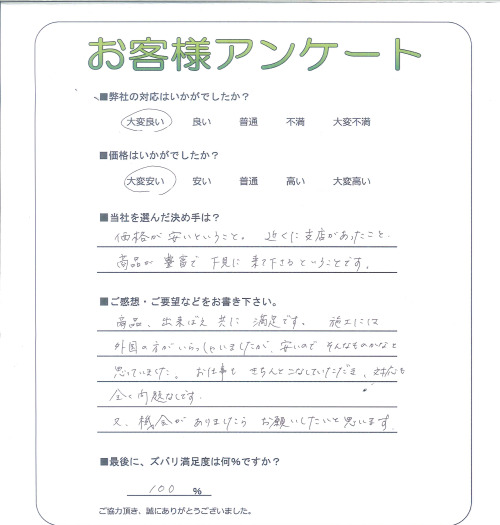 お客様アンケート
■弊社の対応はいかがでしたか?
大変良い 良い 普通 不満 大変不満
■価格はいかがでしたか?
大変安い 安い 普通 高い 大変高い
■当社を選んだ決め手は?
価格が安いということ。 近くに支店があったこと。
商品が豊富で下見に来て下さるということです。
■ご感想・ご要望などをお書き下さい。
商品、出来ばえ共に満足です。 施工には
外国の方がいらっしゃいましたが、安いのでそんなものかなと
思っていました。 お仕事もきちんとこなしていただき、対応も
全く問題なしです。
又、機会がありましたらお願いしたいと思います。
■最後に、ズバリ満足度は何%ですか?
100 %
ご協力頂き、誠にありがとうございました。